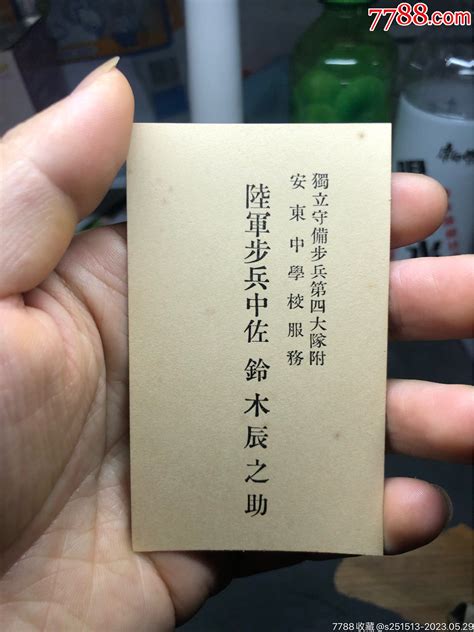 7788.com
獨立守備步兵第四大隊附
安東中學校服務
陸軍步兵中佐 鈴木辰之助
7788收藏@s251513-2023.05.29